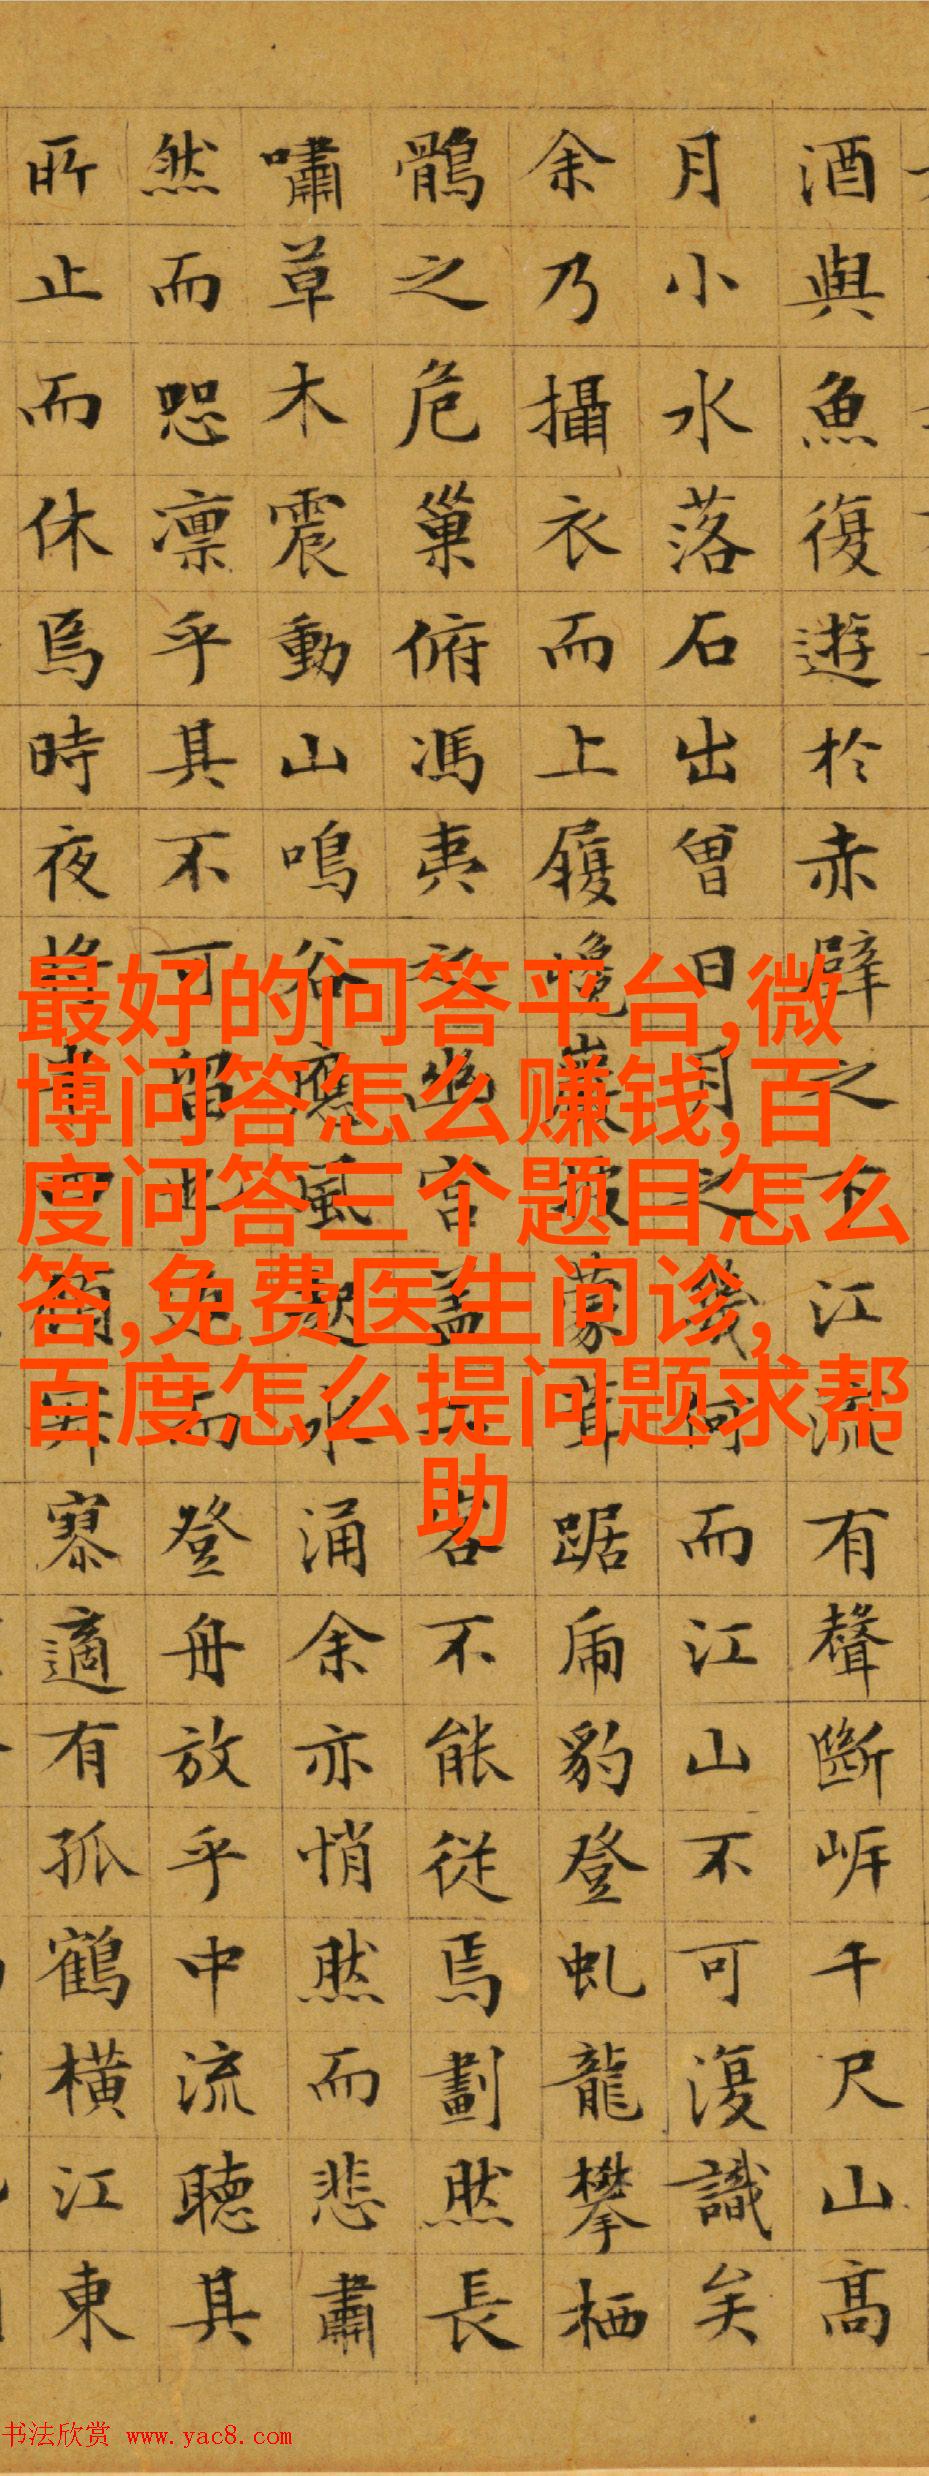 酒與魚復遊於赤壁之下江流有聲斷岸千尺山高
月小水落石出曾日月之幾何而江山不可復識矣
余乃攝衣而上履巉巖披蒙茸踞虎豹登虬龍攀栖
鶻之危巢俯馮夷之幽宮蓋二客不能從焉劃然長
嘯草木震動山鳴谷應風起水涌余亦悄然而悲肅
然而恐凛乎其不可留也反而登舟放乎中流聽其
所止而休焉時夜將半四顧寂寥適有孤鶴橫江東
最好的问答平台,微
博问答怎么赚钱,百
度问答三个题目怎么
答,免费医生问诊,
百度怎么提问题求帮
助
书法欣赏 www.yac8.com